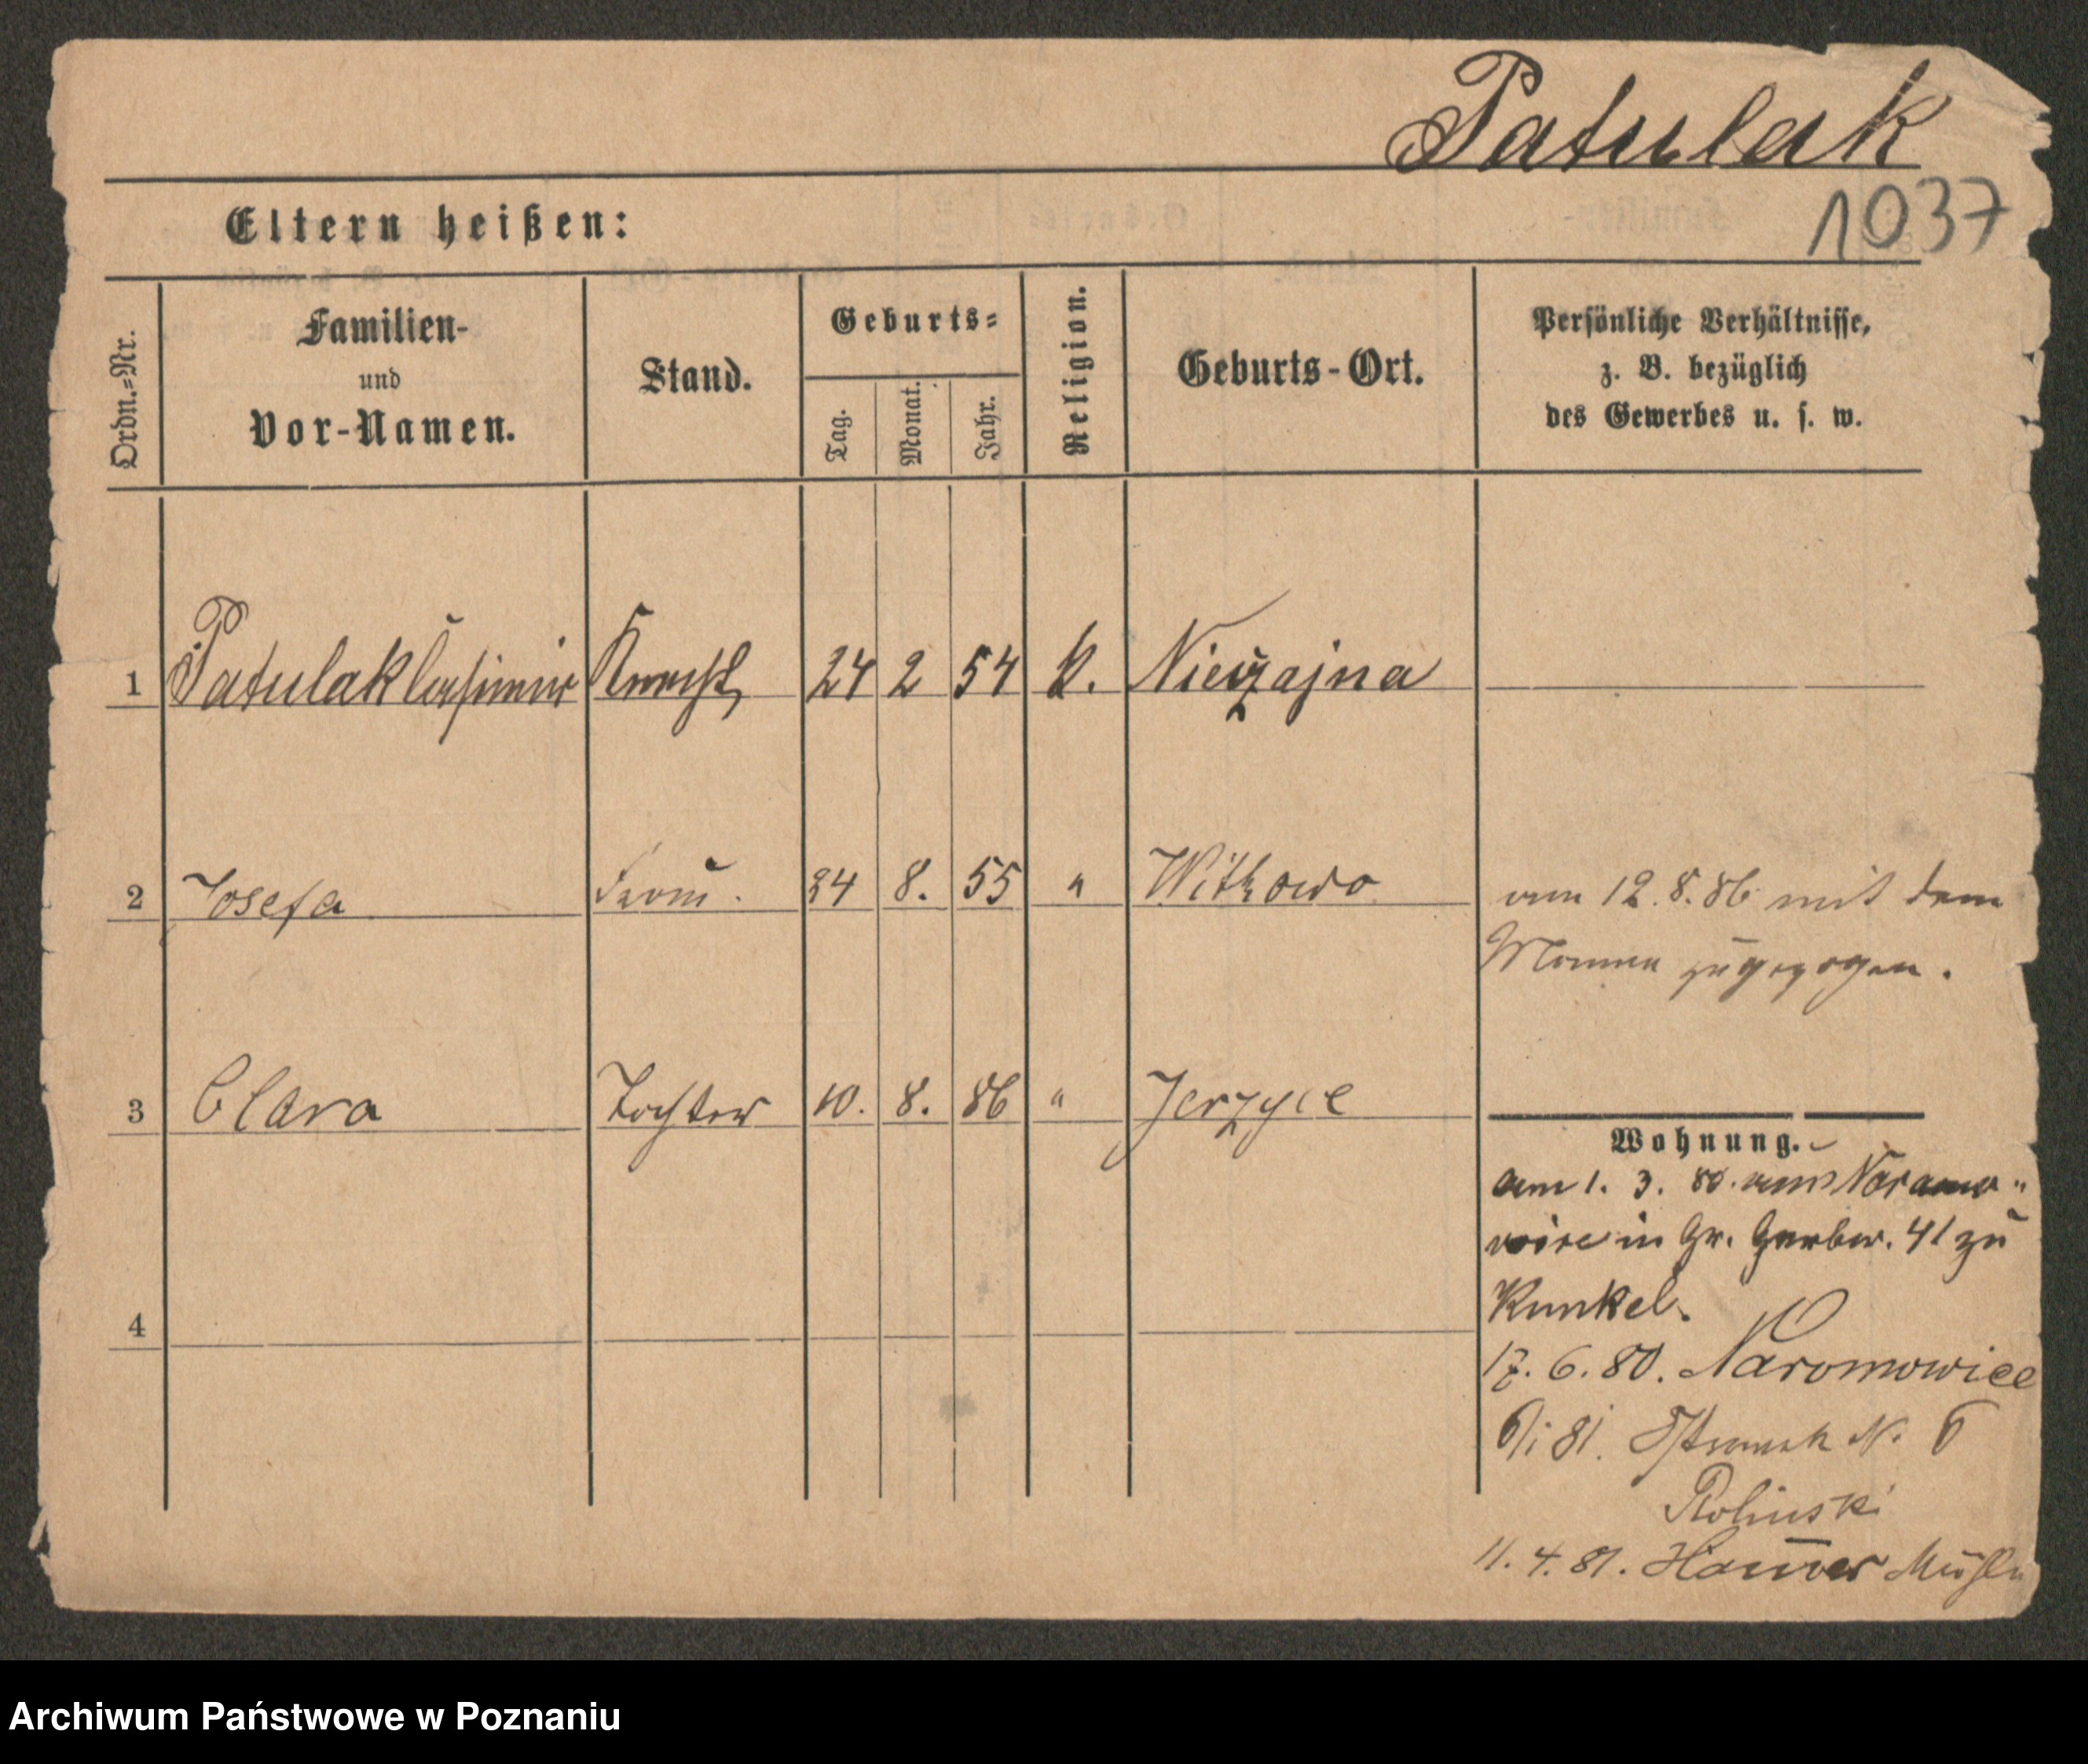 Patulak
1037
Eltern heißen:
Ordn.=Nr.
Familien-
und
Vor-Namen.
Stand.
Geburts=
Tag.
Monat.
Jahr.
Religion.
Geburts-Ort.
Persönliche Verhältnisse,
z. B. bezüglich
des Gewerbes u. s. w.
1 Patulak Casimir Knecht 24 2 54 k. Nieczajna
2 Josefa Frau. 24 8. 55 " Witkowo
am 12.8.86 mit dem
Manne zugezogen.
3 Clara Tochter 10. 8. 86 " Jerzyce
Wohnung.
am 1. 3. 80. aus Naramo"
wice in Gr. Gerber. 41 zu
Kunkel.
4
17. 6. 80. Naromowice
6/1 81. N. 6
11. 4. 81. Mühle
Archiwum Państwowe w Poznaniu